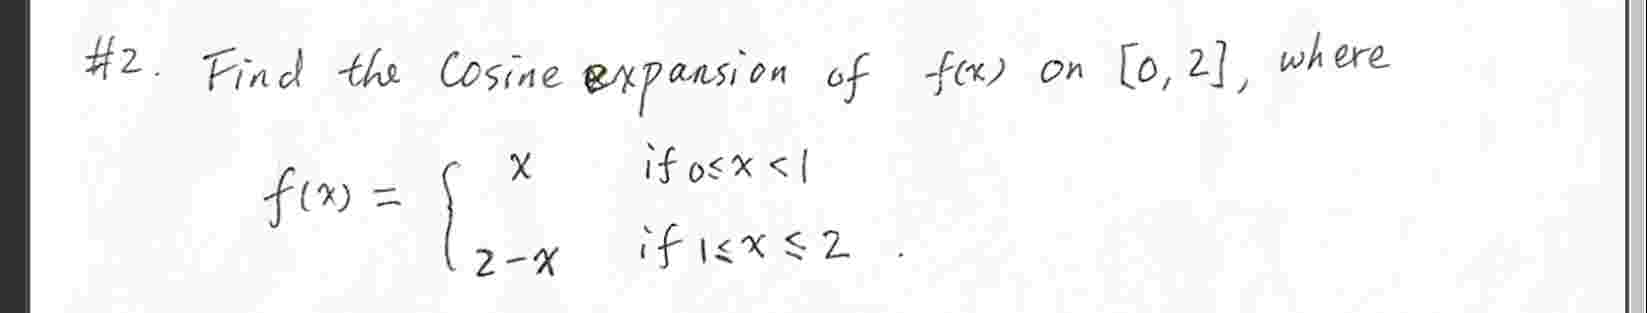 #2. Find the Cosine expansion of f(x) on [0, 2], where
f(x) = { x if 0≤x<1
2-x if 1≤x≤2 .